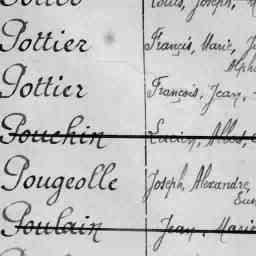 Louis, Joseph,
Pottier Francis, Marie,
Pottier François, Jean,
Pouchin Lucien, Albert,
Pougeolle Joseph, Alexandre,
Poulain Jean, Marie